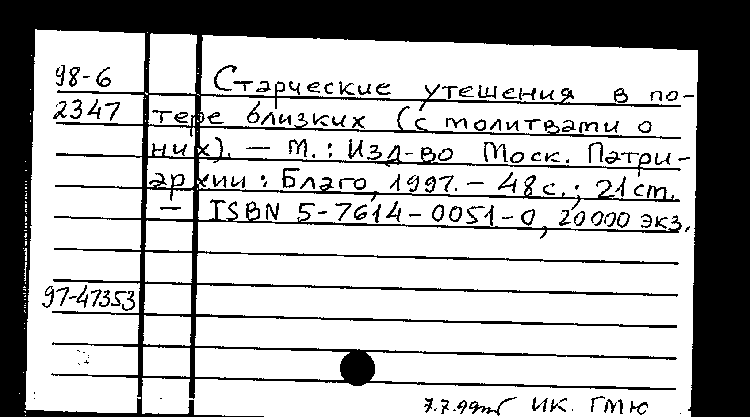 98-6
2347
Старческие утешения в по-
тере близких (с молитвами о
них). — М.: Изд-во Моск. Патри-
архии: Благо, 1997. – 48 с.; 21 см.
— ISBN 5-7614-0051-0, 20000 экз.
97-47353
ИК. ГМЮ